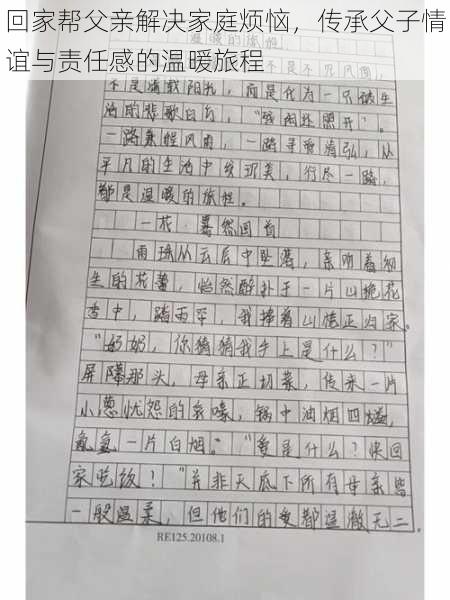 回家帮父亲解决家庭烦恼，传承父子情
谊与责任感的温暖旅程
温暖的旅程
不是满载阳光，而是化为一只被生
活的悲歌
一路兼程风雨，一路寻爱
平凡的生活中发现美，行尽一路，
都是温暖的旅程。
一花 蓦然回首
雨珠从云层中坠落，亲吻着初
生的花蕾，怡然醉扑于一片山桃花
香中，踏雨罕，我捧着山桃正归家。
“奶奶，你猜猜我手上是什么？”
屏障那头，母亲正切菜，传来一片
小葱忧怨的哀嚎，锅中油烟四溢，
氤氲一片白烟。“爱是什么？快回
家吃饭！”并非天底下所有母亲皆
一般温柔，但他们的爱都澄澈无二
RE125.20108.1